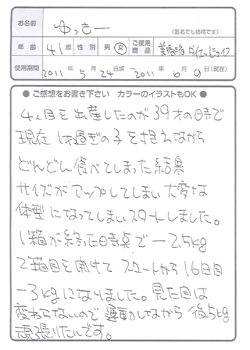 お名前 ゆっきー
(匿名でも結構です)
年齢 41歳 性別 男・女 ご使用商品
使用期間 2011年5月24日~2011年6月9日(現在)
ご感想をお書き下さい カラーのイラストもOK
4人目を出産したのが39才の時で
現在1才過ぎの子を抱えながら
どんどん食べてしまった結果
サイズがアップしてしまい大変な
体型になってしまいスタートしました。
1箱が終った時点で-2.5kg
2箱目を開けて スタートから16日目
-3kgになりました。見た目は
変わらないので運動しながら後5kg
頑張りたいです。